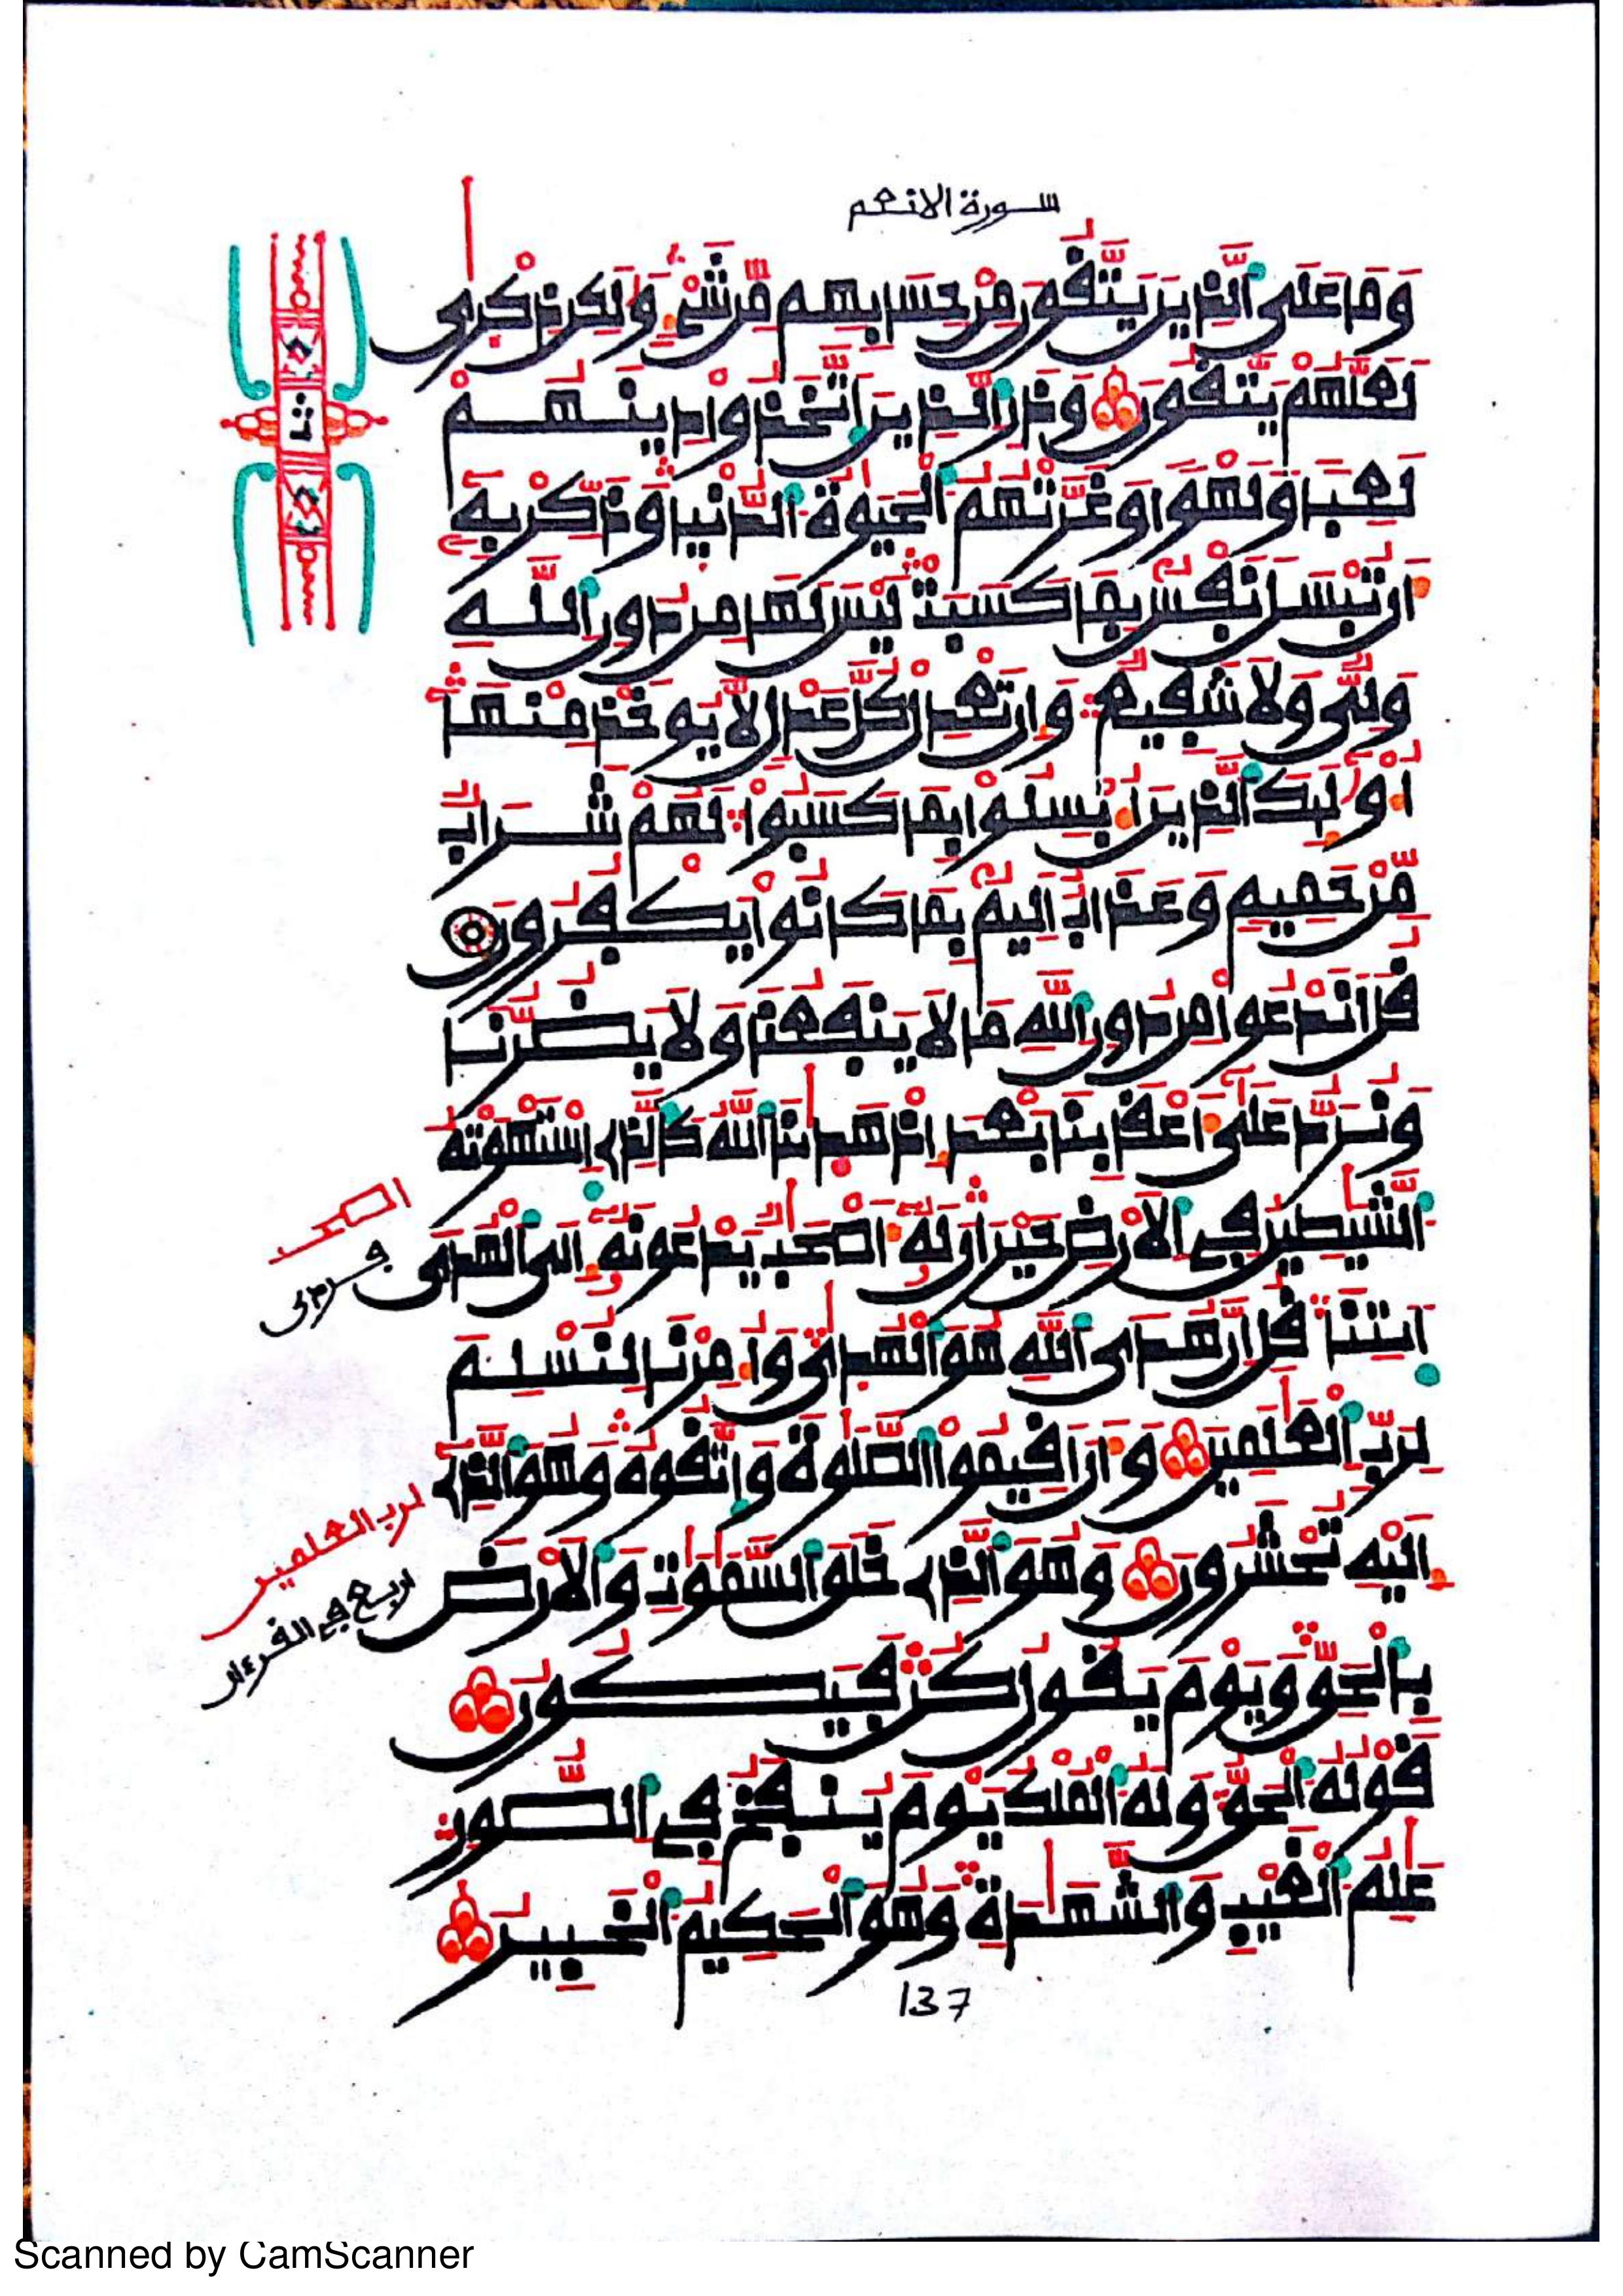 سورة الانعم
وَمَا عَلَى ٱلذِينَ يَتَّقُونَ مِنْ حِسَابِهِم مِّن شَےْءٖ وَلَٰكِن ذِكْرٜىٰ
لَعَلَّهُمْ يَتَّقُونَ وَذَرِ ٱلذِينَ ٱتَّخَذُواْ دِينَهُمْ
لَعِباٗ وَلَهْواٗ وَغَرَّتْهُمُ ٱلْحَيَوٰةُ ٱلدُّنْيَا وَذَكِّرْ بِهِۦٓ
أَن تُبْسَلَ نَفْسُۢ بِمَا كَسَبَتْ لَيْسَ لَهَا مِن دُونِ ٱللَّهِ
وَلِيّٞ وَلَا شَفِيعٞ وَإِن تَعْدِلْ كُلَّ عَدْلٖ لَّا يُوخَذْ مِنْهَآ
أُوْلَٰٓئِكَ ٱلذِينَ أُبْسِلُواْ بِمَا كَسَبُواْ لَهُمْ شَرَابٞ
مِّنْ حَمِيمٖ وَعَذَابٌ أَلِيمُۢ بِمَا كَانُواْ يَكْفُرُونَ
قُلَ أَنَدْعُواْ مِن دُونِ ٱللَّهِ مَا لَا يَنفَعُنَا وَلَا يَضُرُّنَا
وَنُرَدُّ عَلَىٰٓ أَعْقَابِنَا بَعْدَ إِذْ هَدَىٰنَا ٱللَّهُ كَالذِے ٱسْتَهْوَتْهُ
ٱلشَّيَٰطِينُ فِے ٱلَارْضِ حَيْرَانَ لَهُۥٓ أَصْحَٰبٞ يَدْعُونَهُۥٓ إِلَى ٱلْهُدَى
ٱيتِنَا قُلِ انَّ هُدَى ٱللَّهِ هُوَ ٱلْهُدٜىٰ وَأُمِرْنَا لِنُسْلِمَ
لِرَبِّ ٱلْعَٰلَمِينَ وَأَنَ أَقِيمُواْ ٱلصَّلَوٰةَ وَٱتَّقُوهُ وَهُوَ ٱلذِےٓ
إِلَيْهِ تُحْشَرُونَ وَهُوَ ٱلذِے خَلَقَ ٱلسَّمَٰوَٰتِ وَٱلَارْضَ
بِالْحَقِّ وَيَوْمَ يَقُولُ كُن فَيَكُونُ
قَوْلُهُ ٱلْحَقُّ وَلَهُ ٱلْمُلْكُ يَوْمَ يُنفَخُ فِے ٱلصُّورِ
عَٰلِمُ ٱلْغَيْبِ وَٱلشَّهَٰدَةِ وَهُوَ ٱلْحَكِيمُ ٱلْخَبِيرُ
137
لرب العلمين
ربع في القرءان
Scanned by CamScanner